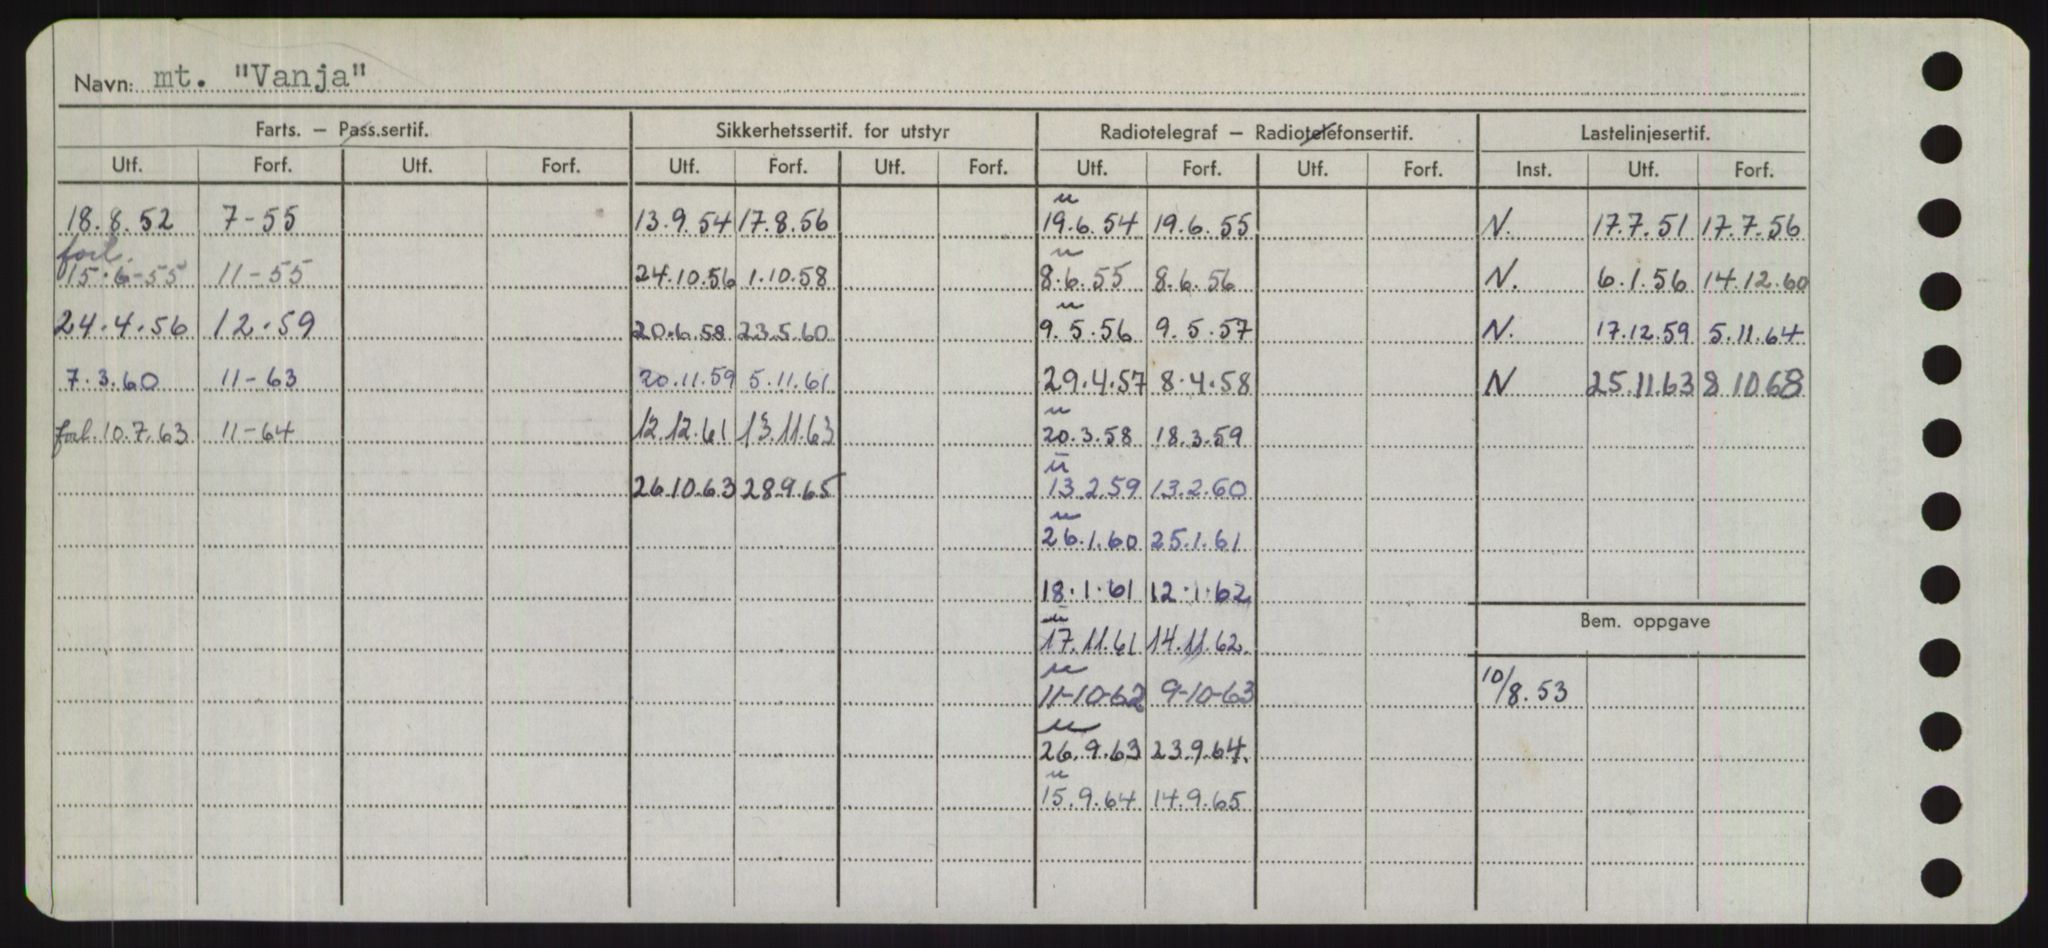 Navn: mt. "Vanja"
Farts. – Pass.sertif. Sikkerhetssertif. for utstyr Radiotelegraf – Radiotelefonsertif. Lastelinjesertif.
Utf. Forf. Utf. Forf. Utf. Forf. Utf. Forf. Utf. Forf. Utf. Forf. Inst. Utf. Forf.
u
18.8.52 7-55 13.9.54 17.8.56 19.6.54 19.6.55 N. 17.7.51 17.7.56
forl. u
15.6-55 11-55 24.10.56 1.10.58 8.6.55 8.6.56 N. 6.1.56 14.12.60
u
24.4.56 12.59 20.6.58 23.5.60 9.5.56 9.5.57 N. 17.12.59 5.11.64
7.3.60 11-63 20.11.59 5.11.61 29.4.57 8.4.58 N 25.11.63 8 10.68
u
forl. 10.7.63 11-64 12.12.61 13.11.63 20.3.58 18.3.59
u
26.10.63 28.9.65 13.2.59 13.2.60
u
26.1.60 25.1.61
18.1.61 12.1.62
u
17.11.61 14.11.62.
Bem. oppgave
u
11-10-62 9-10-63 10/8.53
u
26.9.63 23.9.64.
u
15.9.64 14.9.65